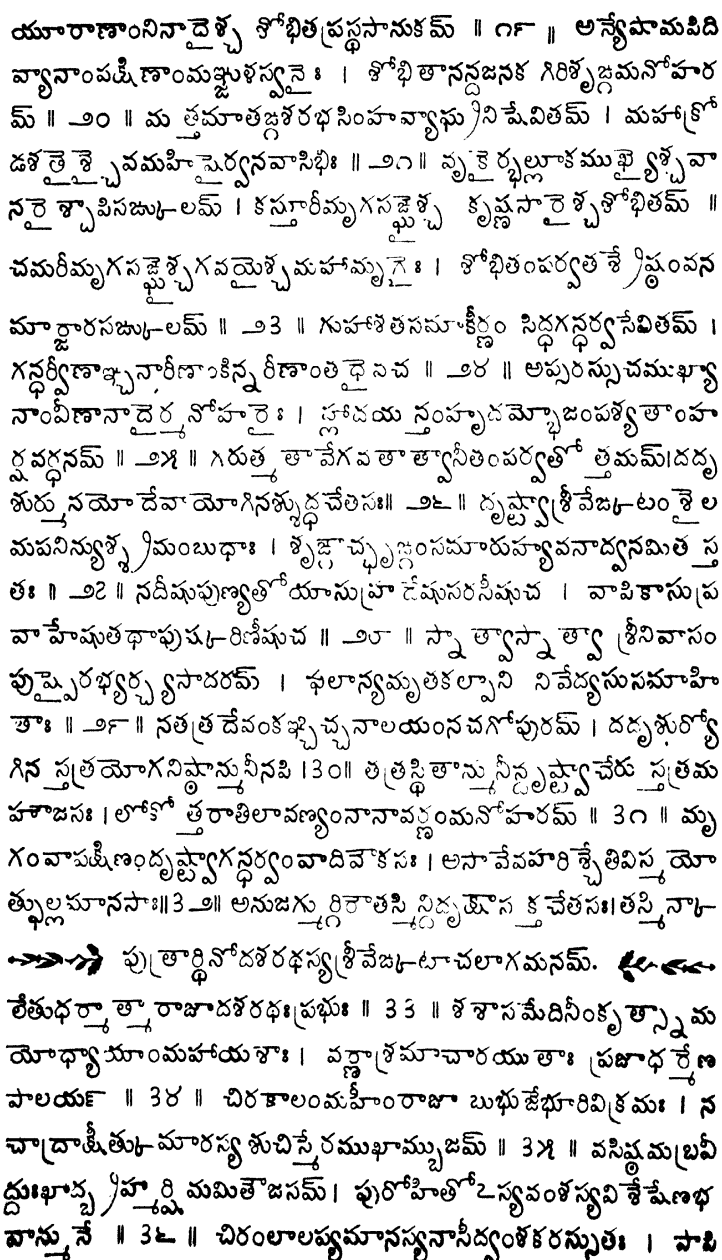 యూరాణాంనినాదైశ్చ శోభితప్రస్థసానుకమ్ ॥ ౧౯ ॥ అన్యేషామపిది
వ్యానాంపక్షిణాంమఞ్జుళస్వనైః । శోభితానన్దజనక గిరిశృఙ్గమనోహర
మ్ ॥ ౨౦ ॥ మ త్తమాతఙ్గశరభసింహవ్యాఘ్రనిషేవితమ్ । మహాక్రో
డశతైశ్చైవమహిషైర్వనవాసిభిః ॥ ౨౧ ॥ వృకైర్భల్లూకముఖ్యైశ్చవా
నరైశ్చాపిసఙ్కులమ్ । కస్తూరీమృగసఙ్ఘైశ్చ కృష్ణసారైశ్చశోభితమ్ ॥
చమరీమృగసఙ్ఘైశ్చగవయైశ్చమహామృగైః । శోభితంపర్వతశ్రేష్ఠంవన
మార్జారసఙ్కులమ్ ॥ ౨౩ ॥ గుహాశతసమాకీర్ణం సిద్ధగన్ధర్వసేవితమ్ ।
గన్ధర్వీణాఞ్చనారీణాంకిన్నరీణాంతథైవచ ॥ ౨౪ ॥ అప్సరస్సుచముఖ్యా
నాంవీణానాదైర్మనోహరైః । హ్లాదయ న్తంహృదమ్భోజంపశ్యతాంహ
ర్షవర్ధనమ్ ॥ ౨౫ ॥ గిరుత్మ తావేగవతాత్వానీతంపర్వతో త్తమమ్।దదృ
శుర్మునయోదేవాయోగినశ్శుద్ధచేతసః॥ ౨౬ ॥ దృష్ట్వాశ్రీవేఙ్కటంశైల
మపనిన్యుశ్శ్రమంబుధాః । శృఙ్గాచ్ఛృఙ్గంసమారుహ్యవనాద్వనమిత స్త
తః ॥ ౨౭ ॥ నదీషుపుణ్యతోయాసుహ్రదేషుసరసీషుచ । వాపికాసుప్ర
వాహేషుతథాపుష్కరిణీషుచ ॥ ౨౮ ॥ స్నాత్వాస్నాత్వా శ్రీనివాసం
పుష్పైరభ్యర్చ్యసాదరమ్ । ఫలాన్యమృతకల్పాని నివేద్యసుసమాహి
తాః ॥ ౨౯ ॥ నతత్రదేవంకఞ్చిచ్చనాలయంనచగోపురమ్ । దదృశుర్యో
గిన స్తత్రయోగనిష్ఠాన్మునీనపి ।౩౦॥ తత్రస్థితాన్మునీన్దృష్ట్వాచేరు స్తత్రమ
హౌజసః । లోకో త్తరాతిలావణ్యంనానావర్ణంమనోహరమ్ ॥ ౩౧ ॥ మృ
గంవాపక్షిణందృష్ట్వాగన్ధర్వంవాదివౌకసః । అసావేవహరిశ్చేతివిస్మయో
త్ఫుల్లమానసాః॥౩౨॥ అనుజగ్ముర్గిరౌతస్మిన్దిదృక్షాస క్తచేతసః।తస్మిన్కా
పుత్రార్థినోదశరథస్యశ్రీవేఙ్కటాచలాగమనమ్.
లేతుధర్మాత్మారాజాదశరథఃప్రభుః ॥ ౩౩ ॥ శశాసమేదినీంకృత్స్నామ
యోధ్యాయాంమహాయశాః । వర్ణాశ్రమాచారయుతాః ప్రజాధర్మేణ
పాలయన్ ॥ ౩౪ ॥ చిరకాలంమహీంరాజా బుభుజేభూరివిక్రమః । న
చాద్రాక్షీత్కుమారస్యశుచిస్మేరముఖామ్బుజమ్ ॥ ౩౫ ॥ వసిష్ఠమబ్రవీ
ద్దుఃఖాద్బ్రహ్మర్షిమమితౌజసమ్। పురోహితోఽస్యవంశస్యవిశేషేణభ
వాన్మునే ॥ ౩౬ ॥ చిరంలాలప్యమానస్యనాసీద్వంశకరస్సుతః । పాపి